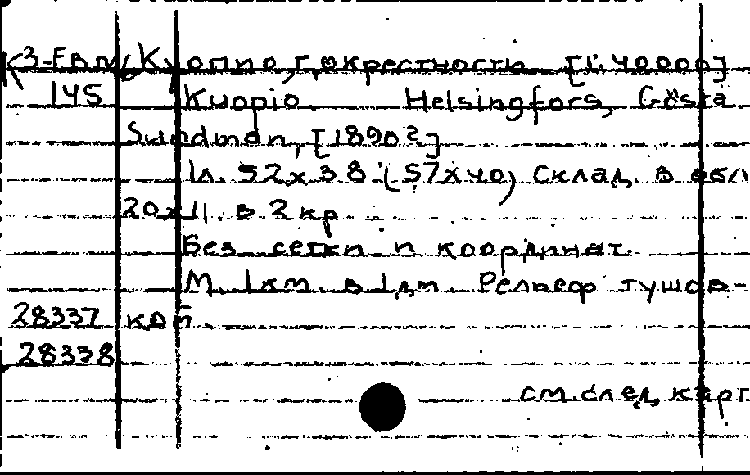 К3-Евм/ Куопио, г, окрестности [1:40000]
145 Kuopio. Helsingfors, Gösta
Sundman, [1890?]
1л. 52х38 (57х40) Склад. в обл
20х11. в 2 кр.
Без сетки и координат.
М. 1км. в 1дм. Рельеф тушов-
28337 кой.
28338
см.след. карт